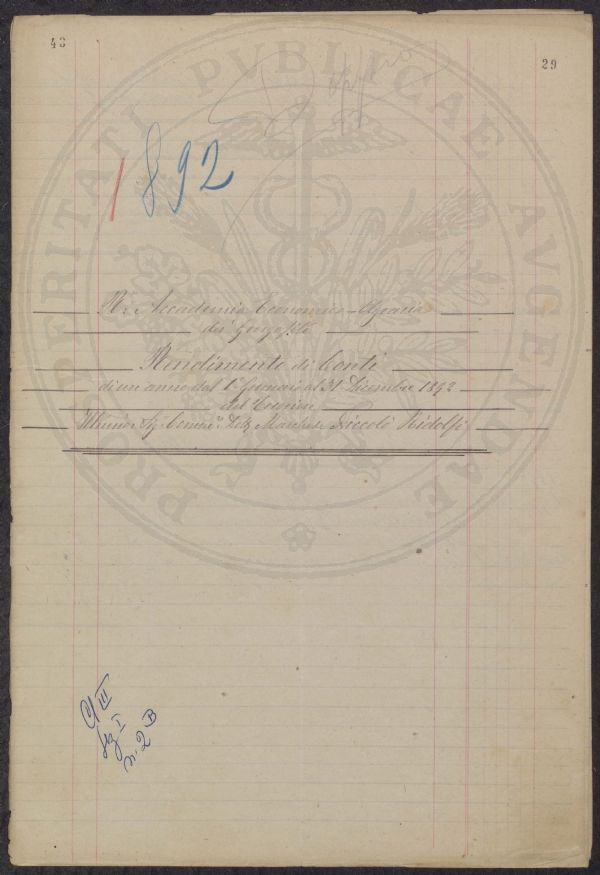 43
29
PROSPERITATI PUBLICAE AUGENDAE
1892
R. Accademia Economico-Agraria
dei Georgofili
Rendimento di Conti
di un anno dal 1° Gennaio al 31 Dicembre 1892
del Cassiere
Sig. Marchese Niccolò Ridolfi
C III
I
n. 2 B